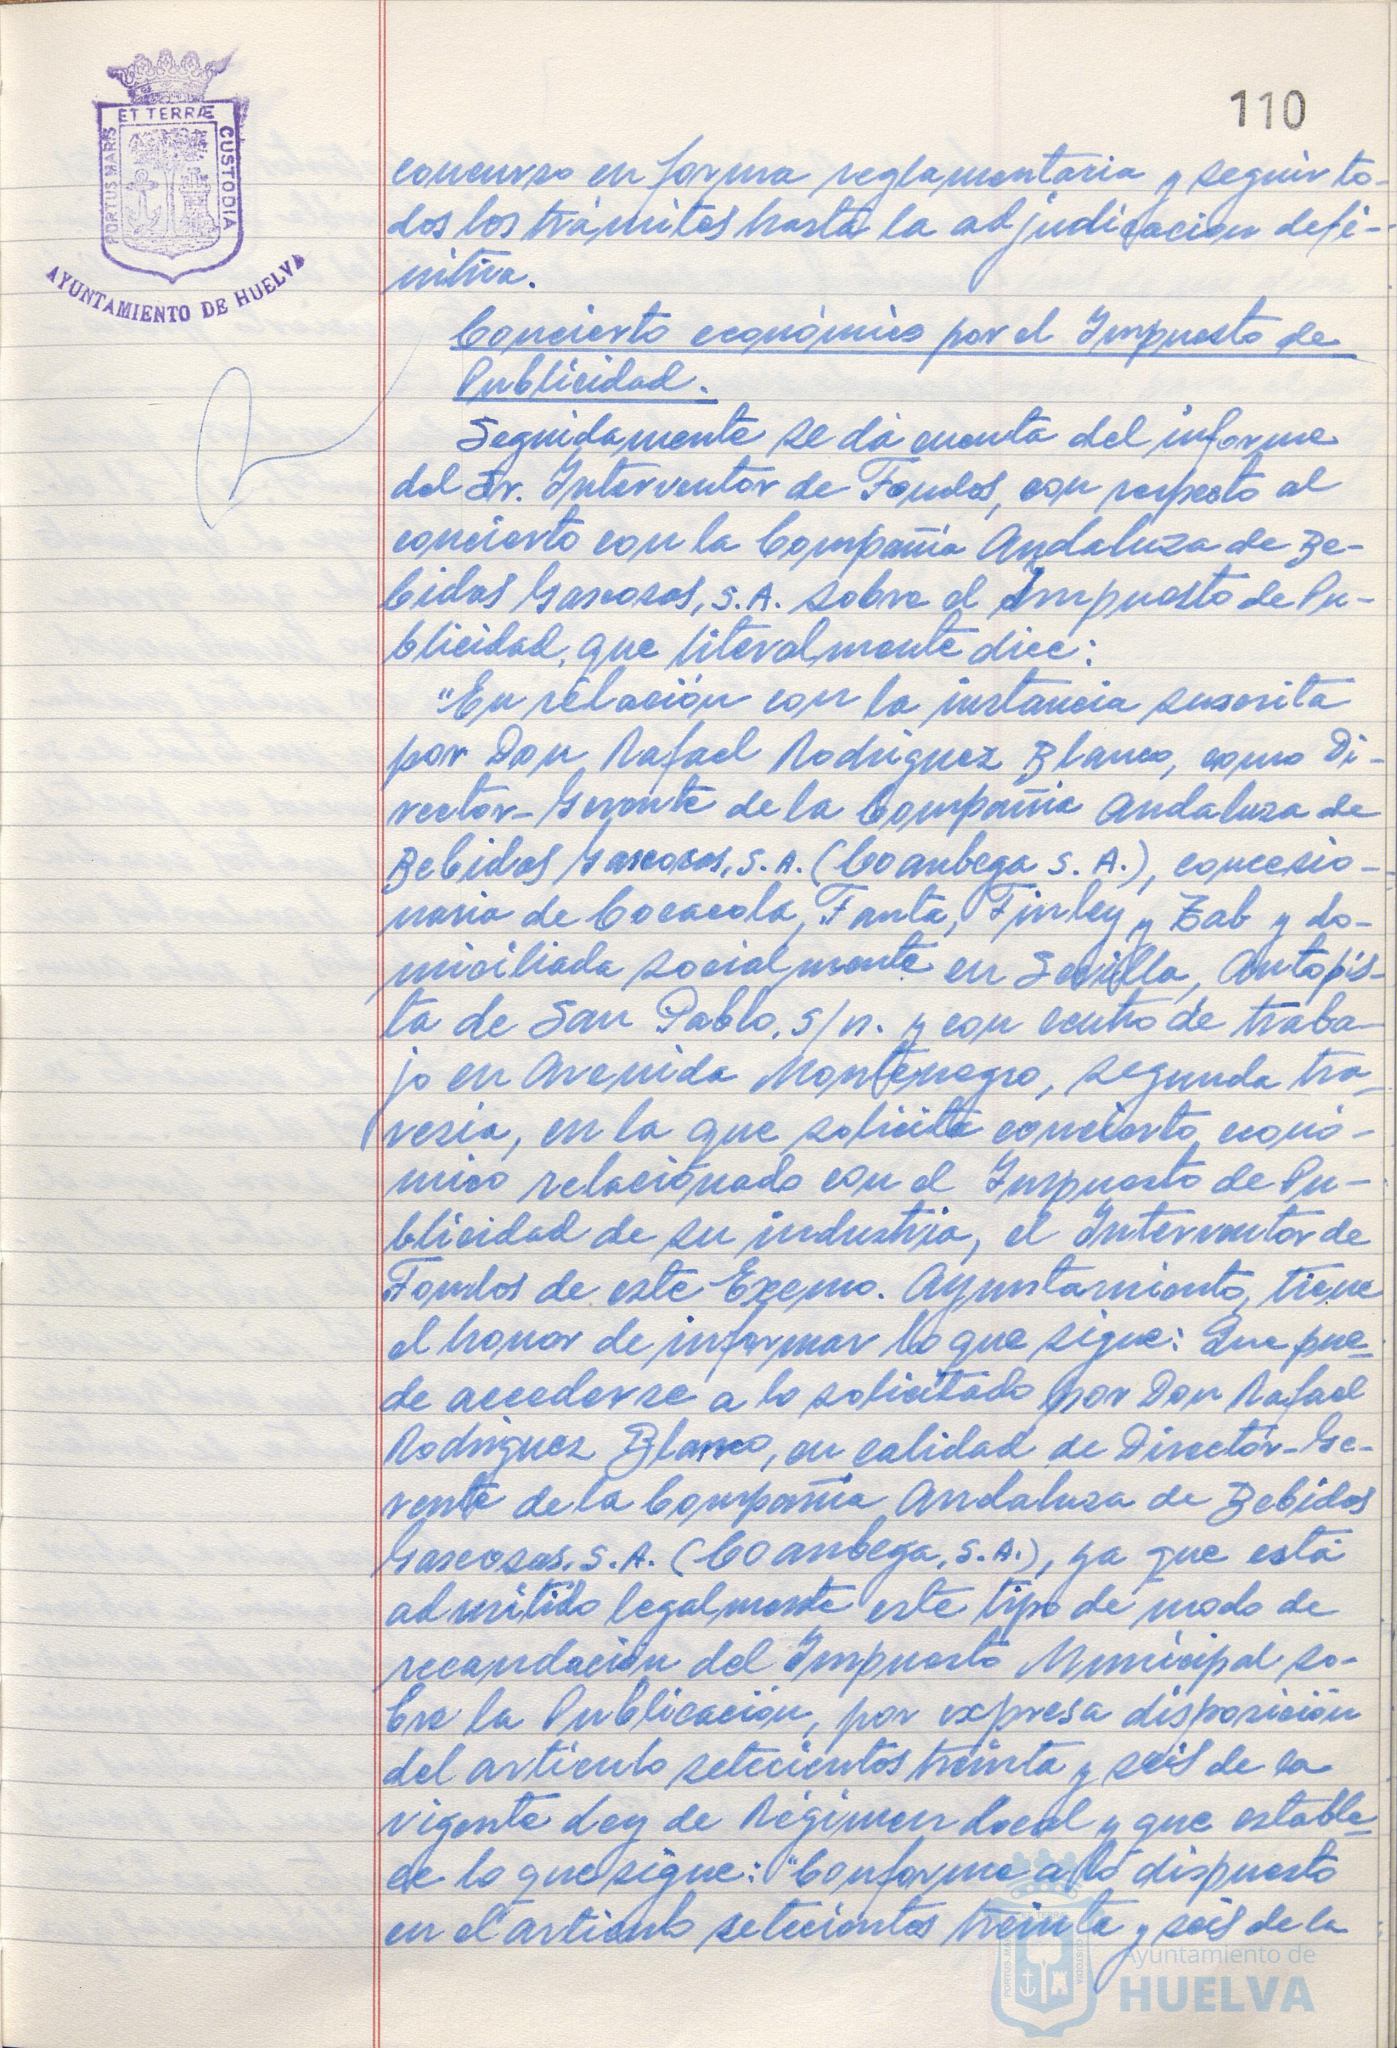 ET TERRÆ
PORTUS MARIS
CUSTODIA
AYUNTAMIENTO DE HUELVA
110
concurso en forma reglamentaria y seguir to-
dos los trámites hasta la adjudicación defi-
nitiva.
Concierto económico por el Impuesto de
Publicidad.
Seguidamente se dá cuenta del informe
del Sr. Interventor de Fondos, con respecto al
concierto con la Compañia Andaluza de Be-
bidas Gaseosas, S.A. sobre el Impuesto de Pu-
blicidad, que literalmente dice:
"En relación con la instancia suscrita
por Don Rafael Rodriguez Blanco, como Di-
rector-Gerente de la Compañia Andaluza de
Bebidas Gaseosas, S.A. (Coanbega S.A.), concesio-
naria de Cocacola, Fanta, Finley y Tab y do-
miciliada socialmente en Sevilla, Autopis-
ta de San Pablo, s/n. y con centro de traba-
jo en Avenida Montenegro, segunda tra-
vesia, en la que solicita concierto econó-
mico relacionado con el Impuesto de Pu-
blicidad de su industria, el Interventor de
Fondos de este Excmo. Ayuntamiento, tiene
el honor de informar lo que sigue: Que pue-
de accederse a lo solicitado por Don Rafael
Rodriguez Blanco, en calidad de Director-Ge-
rente de la Compañia Andaluza de Bebidas
Gaseosas, S.A. (Coanbega, S.A.), ya que está
admitido legalmente este tipo de modo de
recaudación del Impuesto Municipal so-
bre la Publicación, por expresa disposición
del artículo setecientos treinta y seis de la
vigente Ley de Régimen Local y que estable-
ce lo que sigue: "Conforme a lo dispuesto
en el artículo setecientos treinta y seis de la
Ayuntamiento de
HUELVA